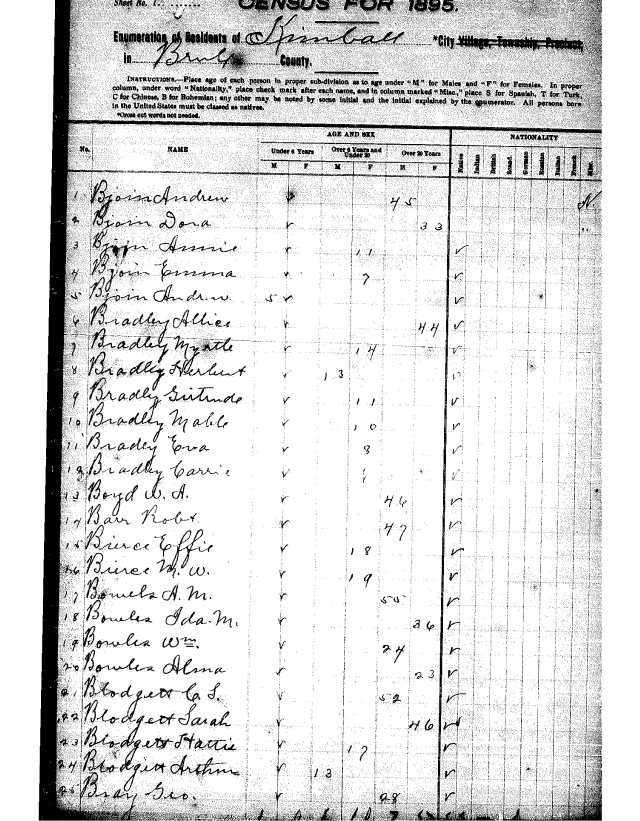 Sheet No.
CENSUS FOR 1895.
Enumeration of Residents of Kimball *City Village, Township, Precinct,
in Brule County.
INSTRUCTIONS.—Place age of each person in proper sub-division as to age under "M" for Males and "F" for Females. In proper
column, under word "Nationality," place check mark after each name, and in column marked "Misc.," place S for Spanish, T for Turk,
C for Chinese, B for Bohemian; any other may be noted by some initial and the initial explained by the enumerator. All persons born
in the United States must be classed as natives.
*Cross out words not needed.
AGE AND SEX NATIONALITY
No. NAME Under 6 Years Over 6 Years and Under 20 Over 20 Years
M F M F M F Native Indian British Scand. German Russian Italian French Misc.
1 Bjoin Andrew ✓ 45 N.
2 Bjoin Dora ✓ 33 "
3 Bjoin Annie ✓ 11 ✓
4 Bjoin Emma ✓ 7 ✓
5 Bjoin Andrew. 5 ✓ ✓
6 Bradley Allice ✓ 44 ✓
7 Bradley Myrtle ✓ 14 ✓
8 Bradley Herbert ✓ 13 ✓
9 Bradley Girtrude ✓ 11 ✓
10 Bradley Mable ✓ 10 ✓
11 Bradey Eva ✓ 8 ✓
12 Bradley Carrie ✓ ✓
13 Boyd W. A. ✓ 46 ✓
14 Barr Robt. ✓ 47 ✓
15 Bierce Effie ✓ 18 ✓
16 Bierce M. W. ✓ 19 ✓
17 Bowels A. M. ✓ 55 ✓
18 Bowles Ida. M. ✓ 36 ✓
19 Bowles Wm. ✓ 24 ✓
20 Bowles Alma ✓ 23 ✓
21 Blodgett C. S. ✓ 52 ✓
22 Blodgett Sarah ✓ 46 ✓
23 Blodgett Hattie ✓ 17 ✓
24 Blodgett Arthur ✓ 13 ✓
25 Bray Geo. ✓ 28 ✓